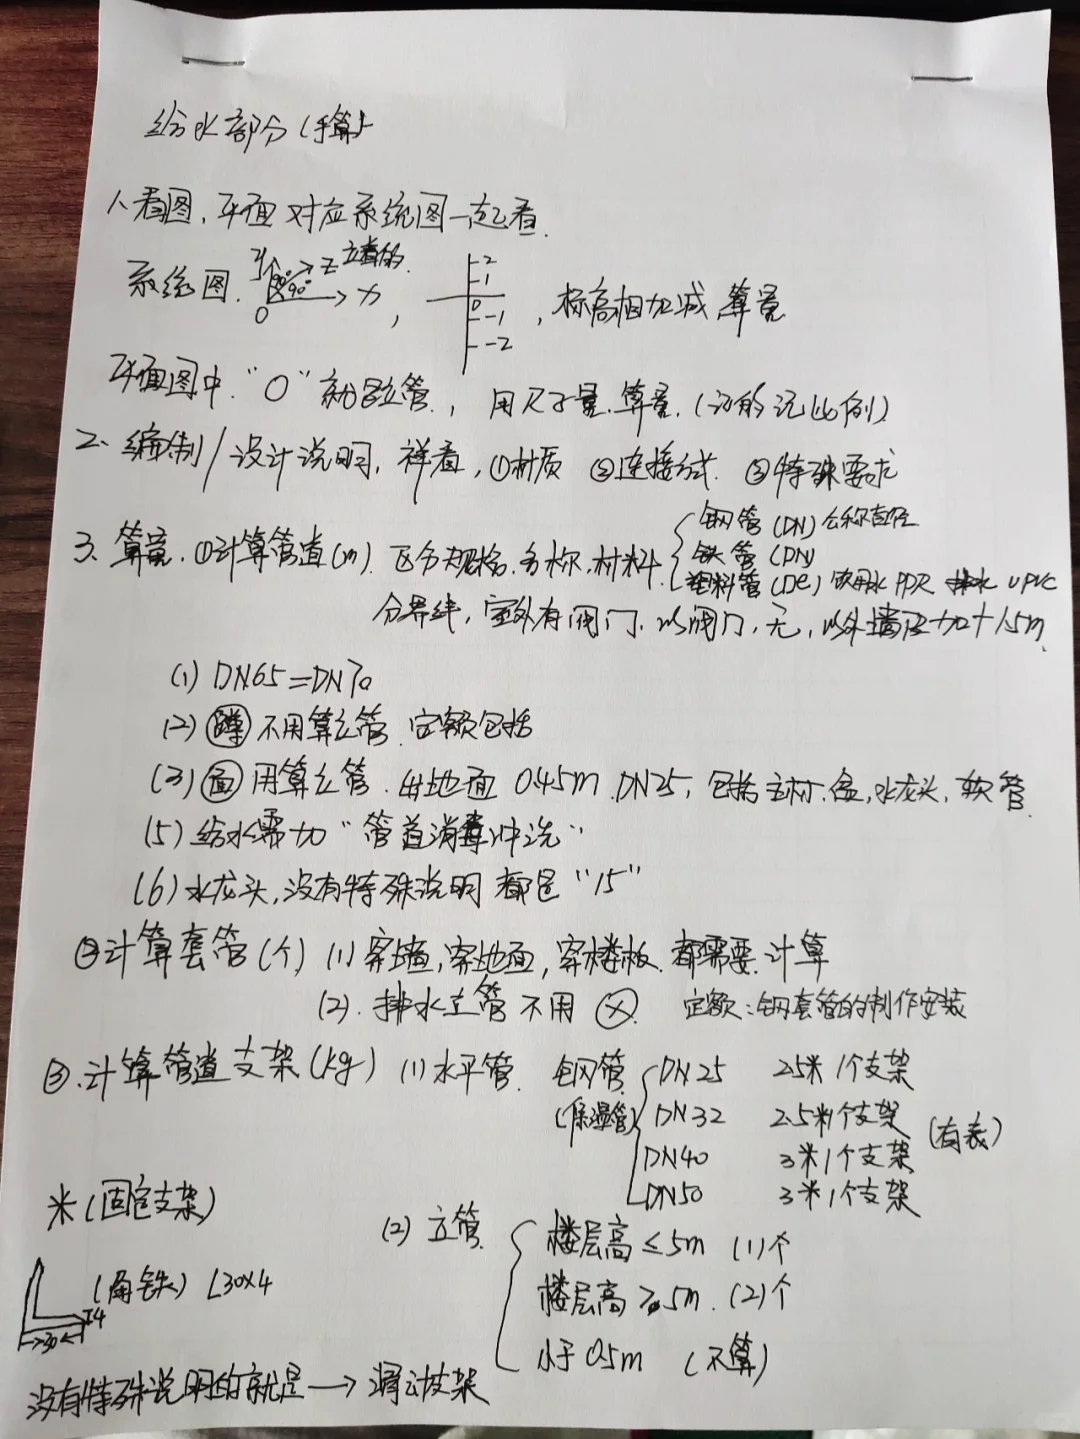 给水部分(手算)
1、看图、平面对应系统图一起看.
系统图. y z 立着的. 90° 90° x 0 , 2 1 0 -1 -2 , 标高相加减 算量
平面图中."O"就是立管. , 用尺子量.算量.(记的记比例)
2、编制/设计说明, 祥看, ①材质 ②连接方式. ③特殊要求
3、算量. ①计算管道(m). 区分规格.名称.材料. 钢管(DN)公称直径
铁管(DN)
塑料管(De) 饮用水 PPR 排水 UPVC
分界线, 室外有阀门, 以阀门, 无, 以外墙皮加+1.5m.
(1) DN65=DN70
(2) 蹲 不用算立管. 定额包括
(3) 面 用算立管. 出地面 0.45m. DN25, 包括主材.盒,水龙头,软管.
(5) 给水需加"管道消毒冲洗"
(6) 水龙头,没有特殊说明 都是"15"
②计算套管(个) (1) 穿墙,穿地面,穿楼板.都需要.计算
(2). 排水立管不用 ⓧ. 定额:钢套管的制作安装
③.计算管道支架(kg) (1) 水平管. 钢管 DN25 2.5米1个支架
(保温管) DN32 2.5米1个支架 (有表)
DN40 3米1个支架
DN50 3米1个支架
米(固定支架)
(2) 立管. 楼层高≤5m (1)个
(角铁) L30x4 楼层高≥5m. (2)个
30 4
小于0.5m (不算)
没有特殊说明的就是→滑动支架